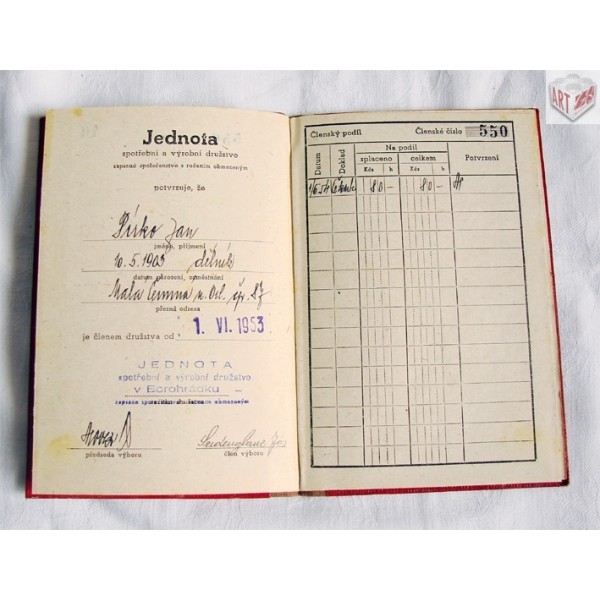 Jednota
spotřební a výrobní družstvo
zapsané společenstvo s ručením obmezeným
potvrzuje, že
Jan
jméno, příjmení
10. 5. 1903 dělník
datum narození, zaměstnání
Malá Čermná n. Orl. čp. 87
přesná adresa
je členem družstva od 1. VI. 1953
JEDNOTA
spotřební a výrobní družstvo
v Borohrádku
zapsané společenstvo s ručením obmezeným
předseda výboru
člen výboru
Členský podíl Členské číslo 550
Datum Doklad Na podíl Potvrzení
splaceno celkem
Kčs h Kčs h
80 - 80 -
ART